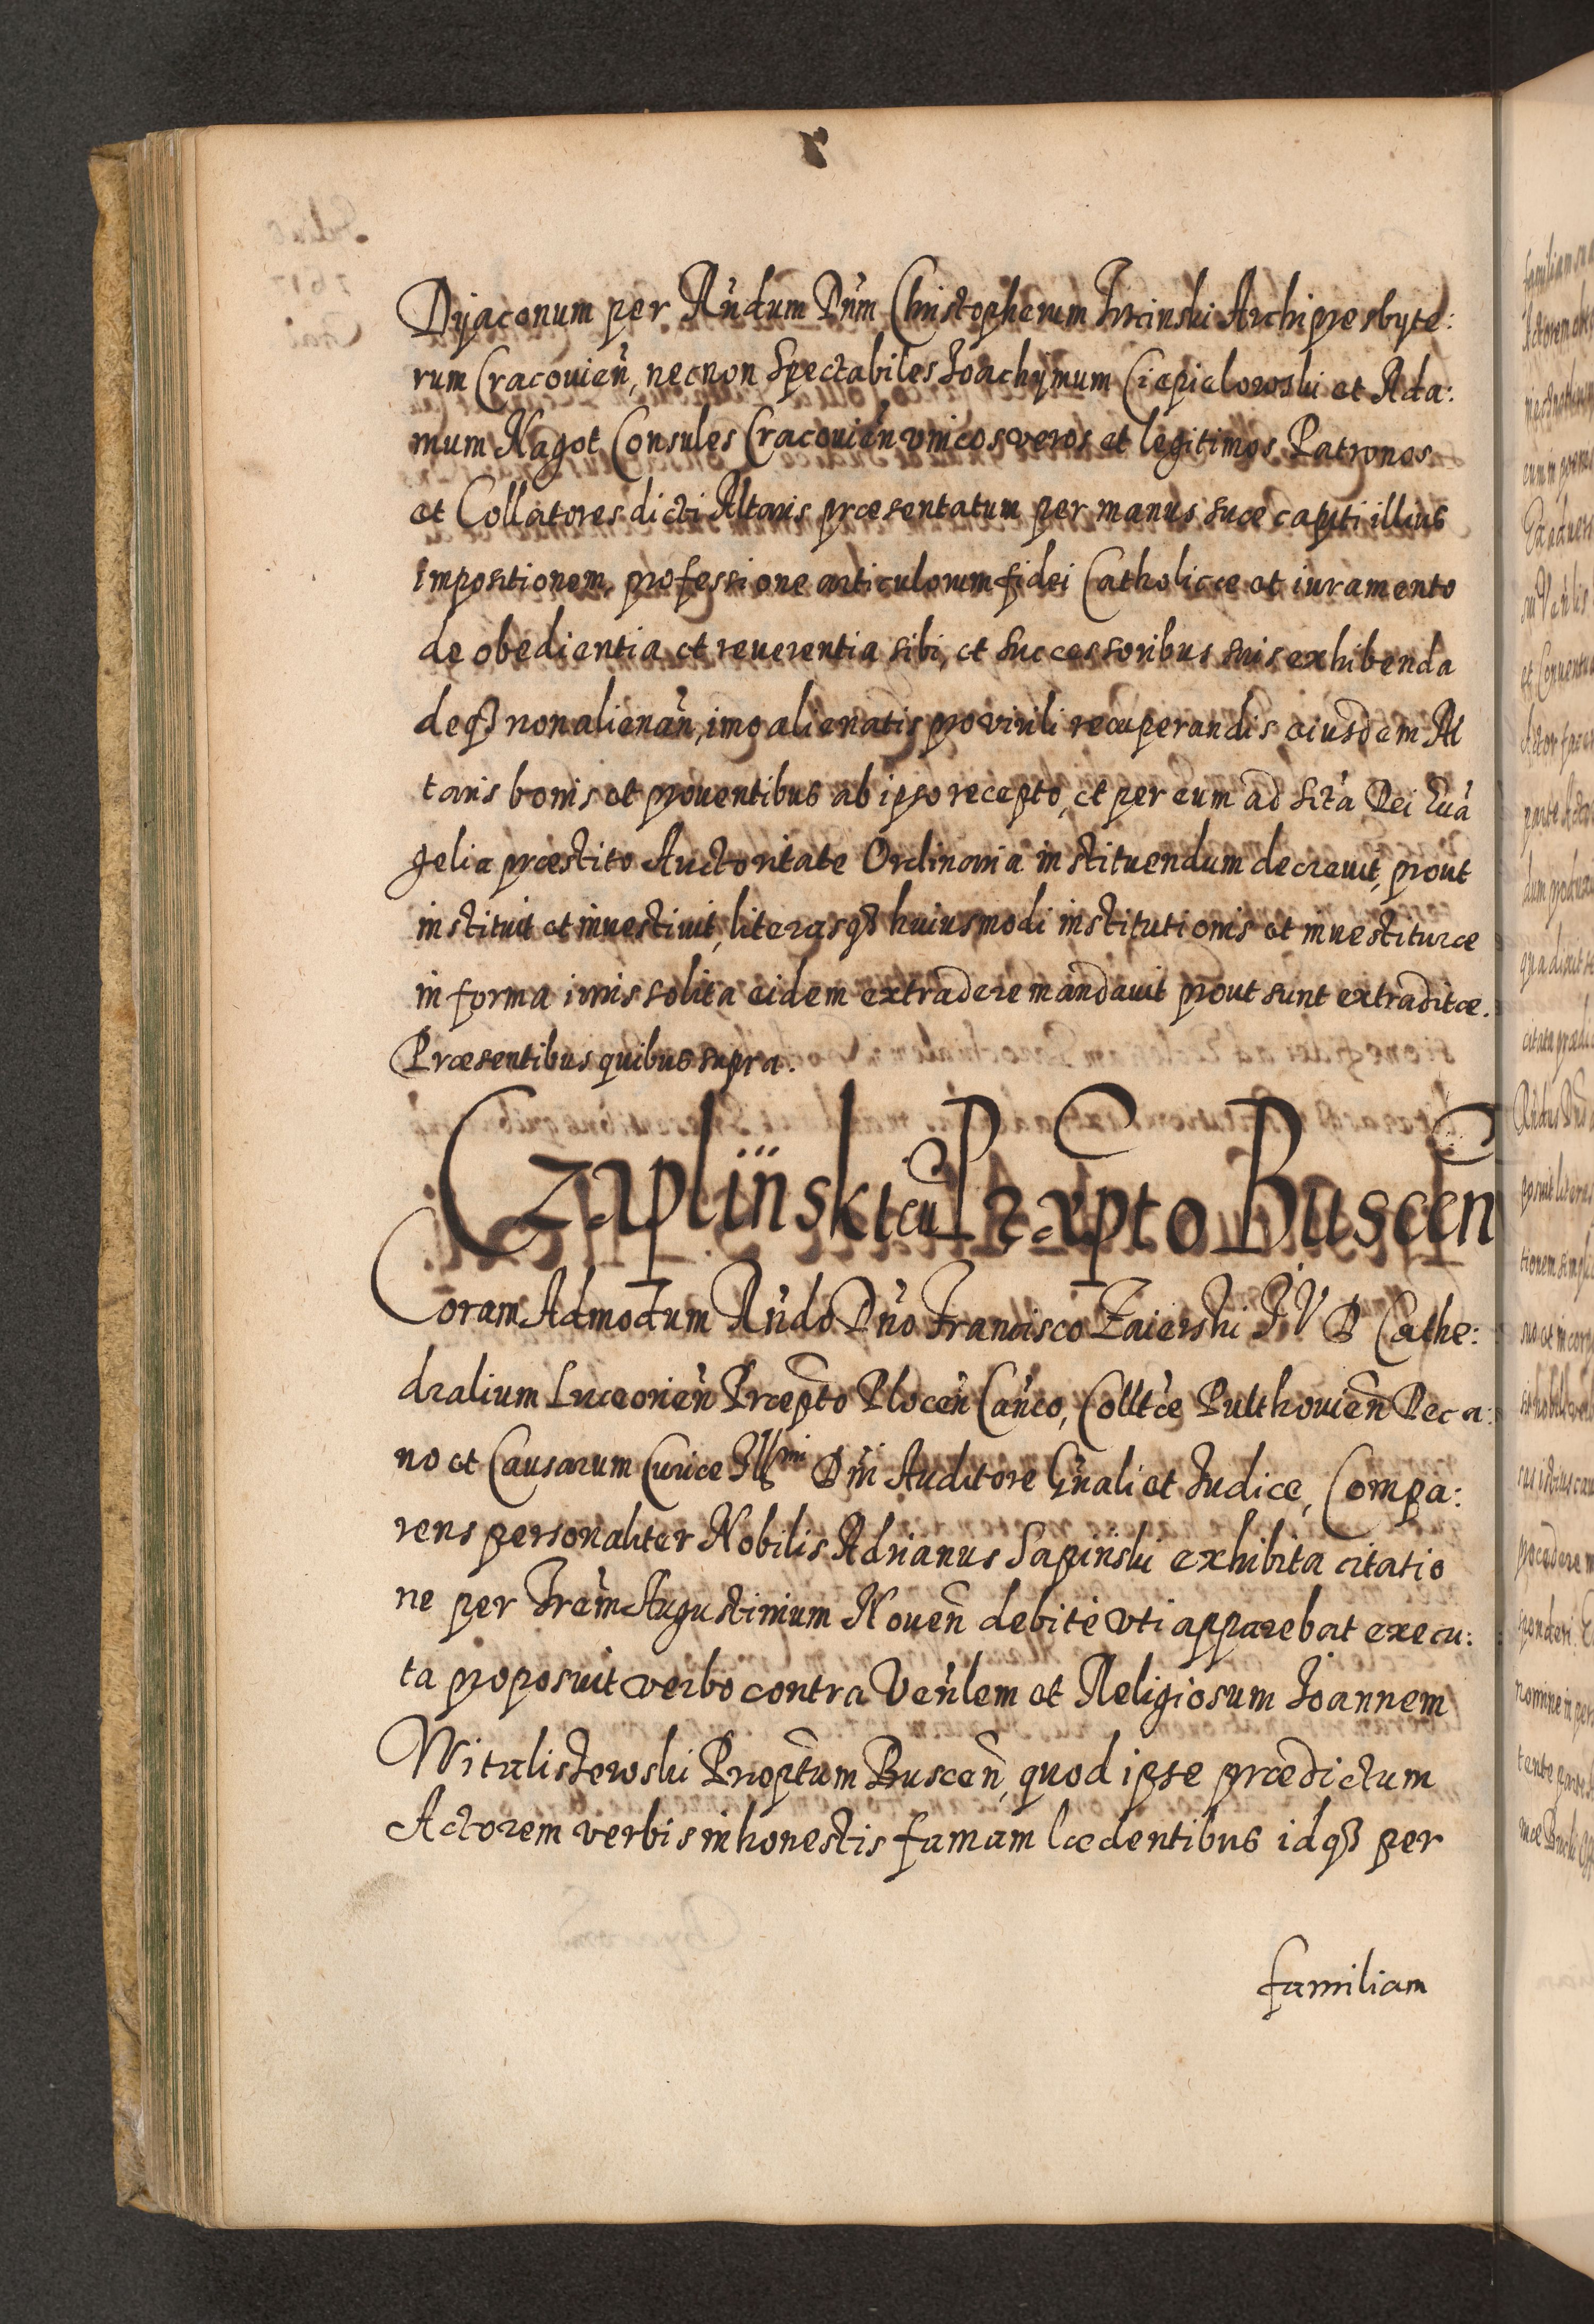 Dyaconum per Rńdum Dńm Christopherum Trzinski Archipresbyte:
rum Cracouień, necnon Spectabiles Ioachymum Ciepielowski et Ada:
mum Nagot Consules Cracouień vnicos veros et legitimos Patronos
et Collatores dicti Altaris præsentatum per manus suæ capiti illius
impositionem, professione articulorum fidei Catholicæ et iuramento
de obedientia et reuerentia sibi, et successoribus suis exhibenda
deqȝ non alienań, imo alienatis pro virili recuperandis eiusdem Al
taris bonis et prouentibus ab ipso recepto, et per eum ad Sctá Dei Euá
gelia præstito Auctoritate Ordinaria instituendum decreuit, prout
instituit et inuestiuit, literasqȝ huiusmodi institutionis et inuestituræ
in forma iuris solita eidem extradere mandauit prout sunt extraditæ.
Præsentibus quibus supra.
Czaplinski cū Præpto Buscen̄
Coram Admodum Rńdo Dńo Francisco Zaierski I V D Cathe:
dralium Luceorień Præpto Ploceń Cańco, Colltæ Pulthouień Deca:
no et Causarum Curiæ Illmi Dńi Auditore Gńali et Iudice, Compa:
rens personaliter Nobilis Adrianus Sapinski exhibita citatio
ne per Frem Augustinium Noueń debitè vti apparebat execu:
ta proposuit verbo contra Veńlem et Religiosum Ioannem
Witalistewski Præptum Busceń, quod ipse prædictum
Actorem verbis inhonestis famam lædentibus idqȝ per
familiam